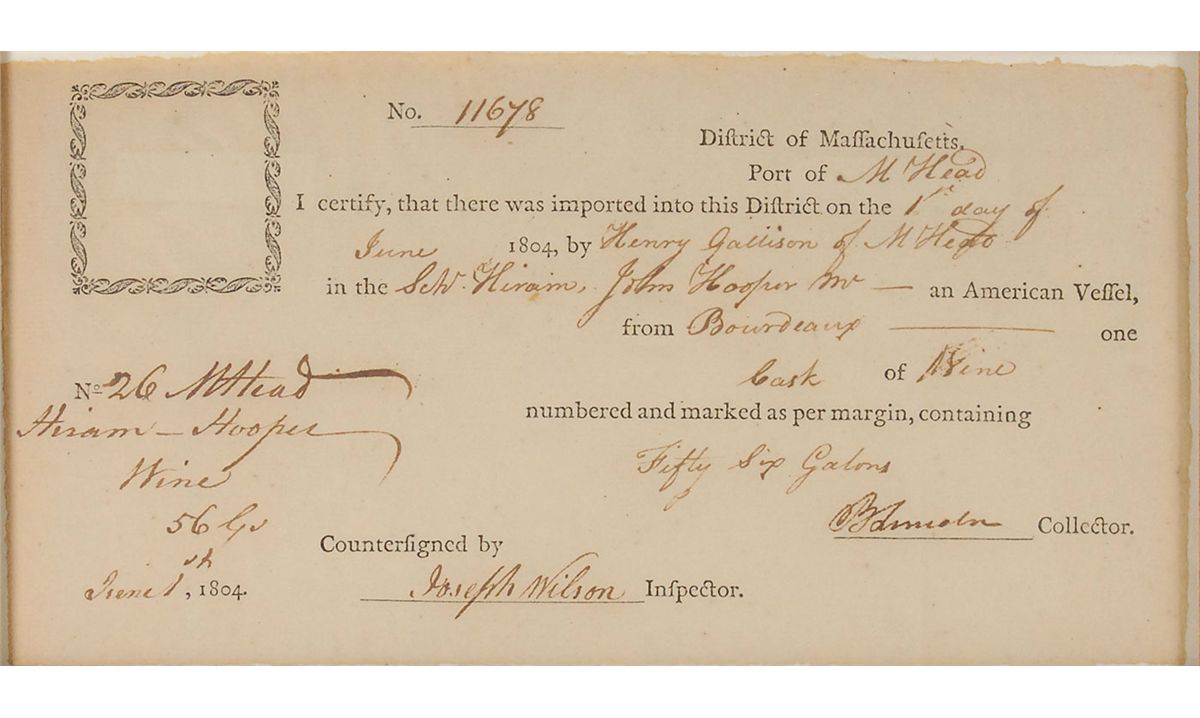 No. 11678
Diſtrict of Maſſachuſetts,
Port of M Head
I certify, that there was imported into this Diſtrict on the 1st day of
June 1804, by Henry Gallison of M Head
in the Schr. Hiram, John Hooper Mr — an American Veſſel,
from Bourdeaux — one
Cask of Wine
numbered and marked as per margin, containing
Fifty Six Galons
B Lincoln Collector.
Counterſigned by
Joseph Wilson Inſpector.
No 26 M Head
Hiram — Hooper
Wine
56 Gs
June 1st, 1804.